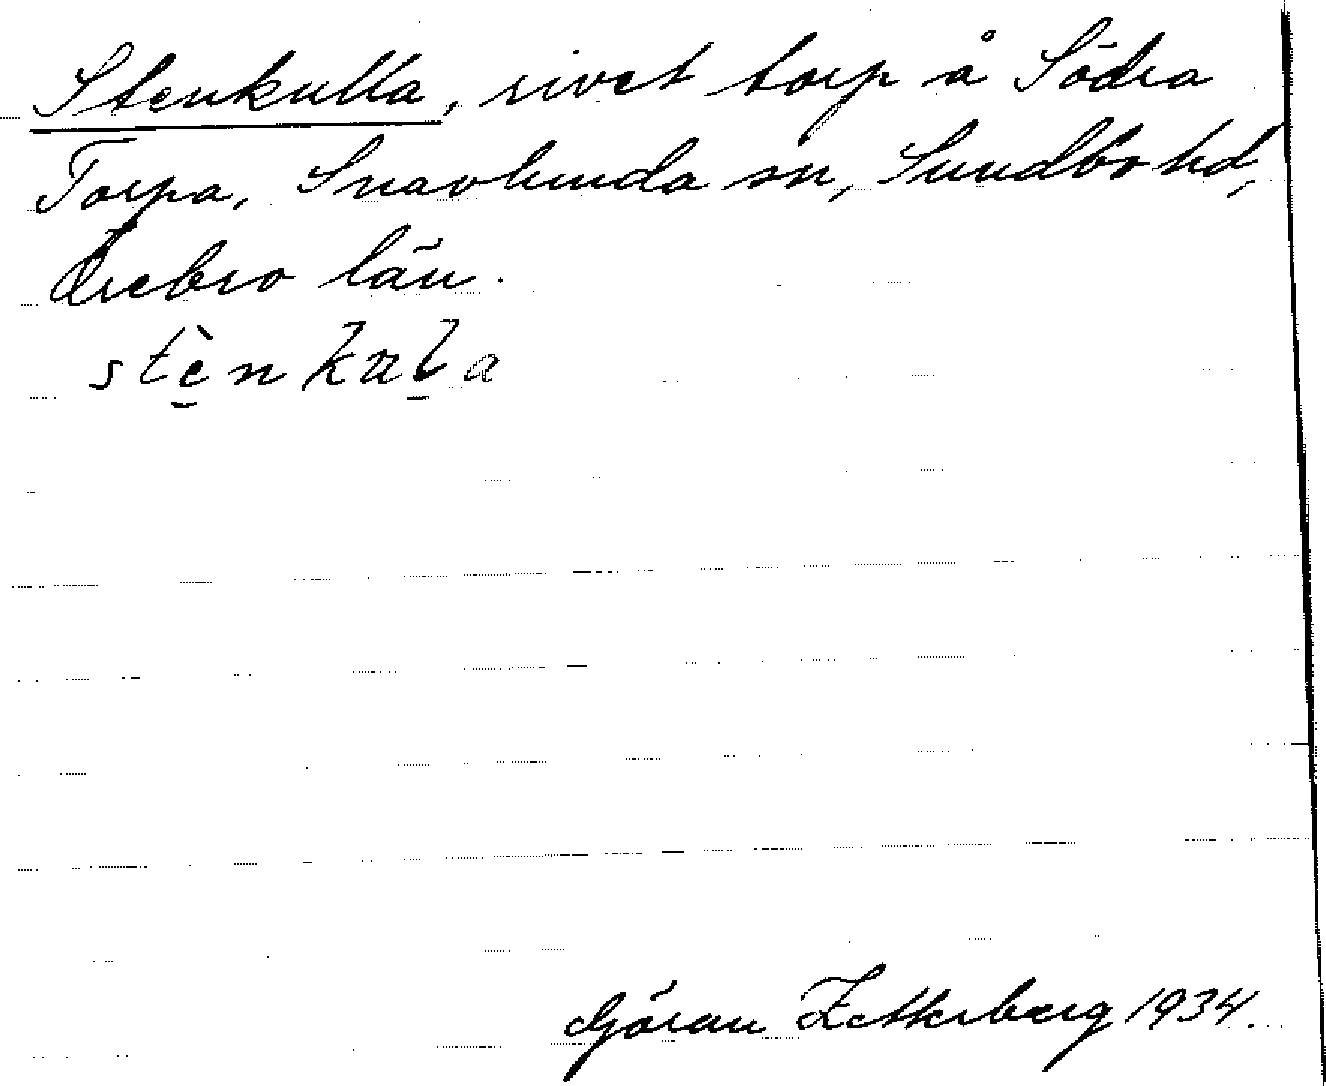 Stenkulla, rivet torp å Södra
Torpa, Snavlunda sn, Sundbo hd,
Örebro län.
stè̠nkul̠a
Göran Zetterberg 1934.